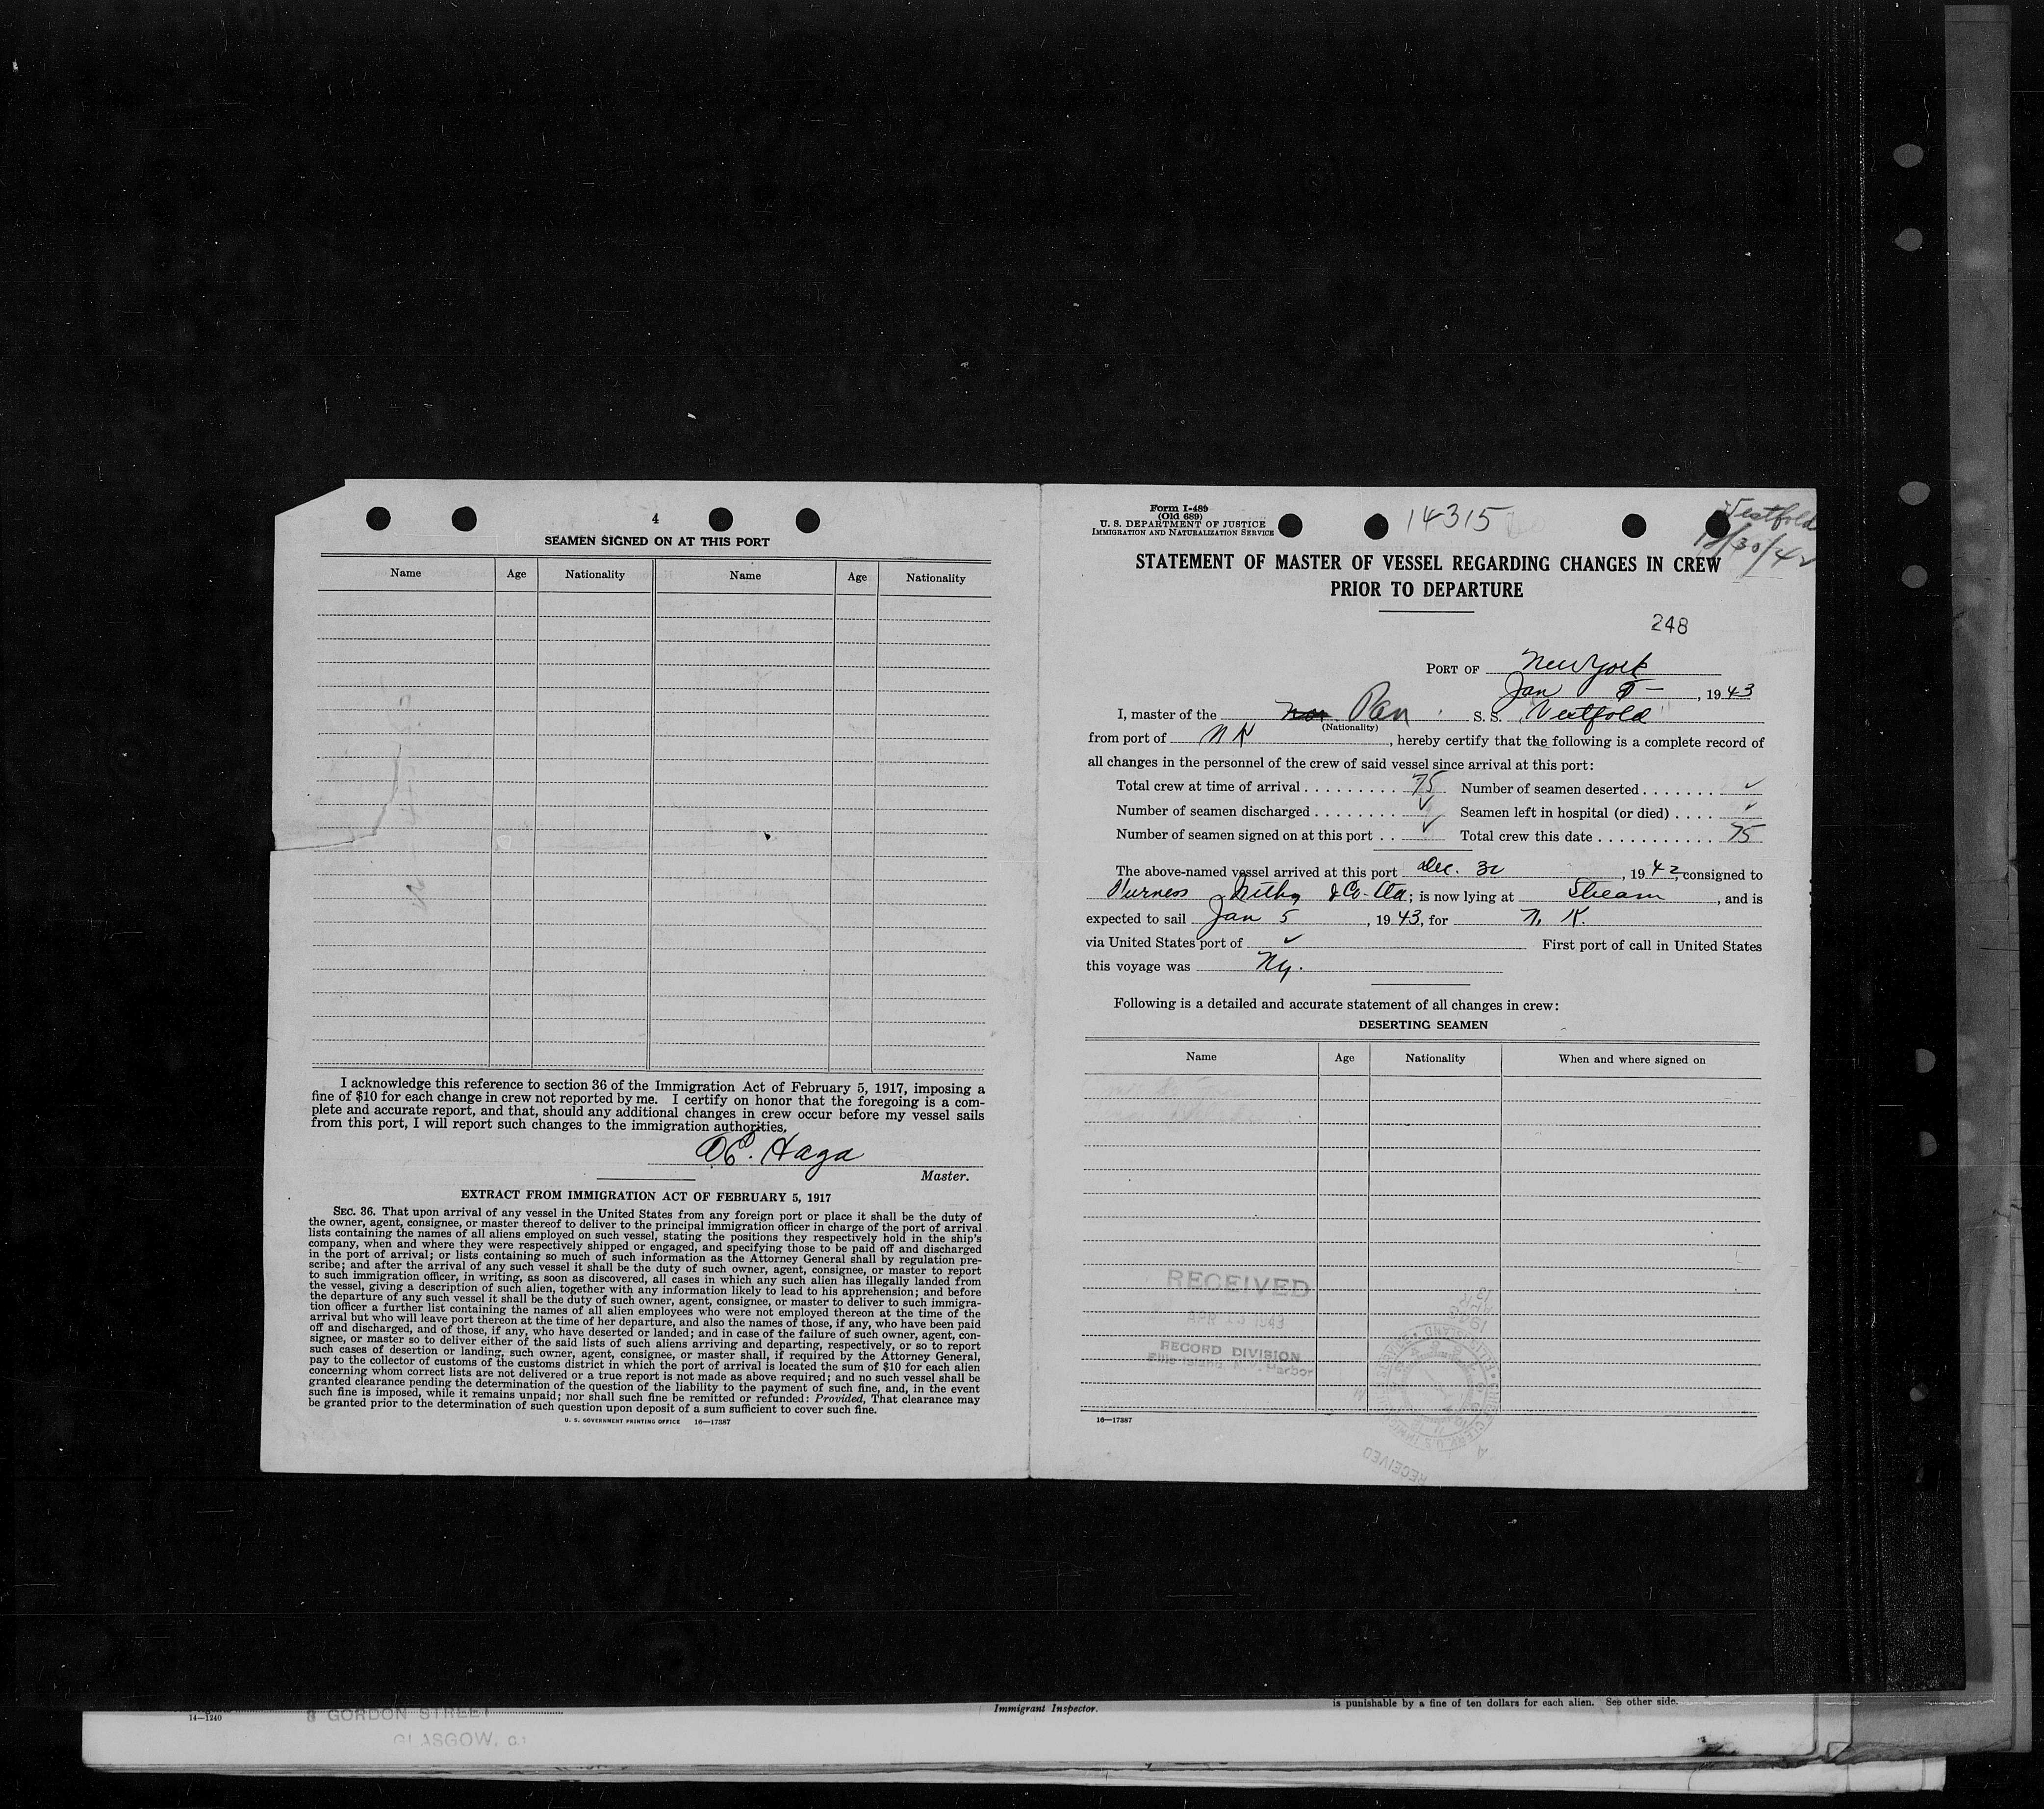 4
SEAMEN SIGNED ON AT THIS PORT
Name Age Nationality Name Age Nationality
I acknowledge this reference to section 36 of the Immigration Act of February 5, 1917, imposing a
fine of $10 for each change in crew not reported by me. I certify on honor that the foregoing is a com-
plete and accurate report, and that, should any additional changes in crew occur before my vessel sails
from this port, I will report such changes to the immigration authorities.
O.E. Haga
Master.
EXTRACT FROM IMMIGRATION ACT OF FEBRUARY 5, 1917
SEC. 36. That upon arrival of any vessel in the United States from any foreign port or place it shall be the duty of
the owner, agent, consignee, or master thereof to deliver to the principal immigration officer in charge of the port of arrival
lists containing the names of all aliens employed on such vessel, stating the positions they respectively hold in the ship's
company, when and where they were respectively shipped or engaged, and specifying those to be paid off and discharged
in the port of arrival; or lists containing so much of such information as the Attorney General shall by regulation pre-
scribe; and after the arrival of any such vessel it shall be the duty of such owner, agent, consignee, or master to report
to such immigration officer, in writing, as soon as discovered, all cases in which any such alien has illegally landed from
the vessel, giving a description of such alien, together with any information likely to lead to his apprehension; and before
the departure of any such vessel it shall be the duty of such owner, agent, consignee, or master to deliver to such immigra-
tion officer a further list containing the names of all alien employees who were not employed thereon at the time of the
arrival but who will leave port thereon at the time of her departure, and also the names of those, if any, who have been paid
off and discharged, and of those, if any, who have deserted or landed; and in case of the failure of such owner, agent, con-
signee, or master so to deliver either of the said lists of such aliens arriving and departing, respectively, or so to report
such cases of desertion or landing, such owner, agent, consignee, or master shall, if required by the Attorney General,
pay to the collector of customs of the customs district in which the port of arrival is located the sum of $10 for each alien
concerning whom correct lists are not delivered or a true report is not made as above required; and no such vessel shall be
granted clearance pending the determination of the question of the liability to the payment of such fine, and, in the event
such fine is imposed, while it remains unpaid; nor shall such fine be remitted or refunded: Provided, That clearance may
be granted prior to the determination of such question upon deposit of a sum sufficient to cover such fine.
U. S. GOVERNMENT PRINTING OFFICE 16—17387
Form I-489
(Old 689)
U. S. DEPARTMENT OF JUSTICE
IMMIGRATION AND NATURALIZATION SERVICE
14315
Vestfold
12/30/42
STATEMENT OF MASTER OF VESSEL REGARDING CHANGES IN CREW
PRIOR TO DEPARTURE
248
PORT OF New York
Jan 5 — , 1943
I, master of the Nor Pan S. S. Vestfold
(Nationality)
from port of N K , hereby certify that the following is a complete record of
all changes in the personnel of the crew of said vessel since arrival at this port:
Total crew at time of arrival . . . . . . . . . . 75 Number of seamen deserted . . . . . . . ✓
Number of seamen discharged . . . . . . . . ✓ Seamen left in hospital (or died) . . . . ✓
Number of seamen signed on at this port . . ✓ Total crew this date . . . . . . . . . . . 75
The above-named vessel arrived at this port Dec. 30 , 1942, consigned to
Furness Withy & Co. Ltd; is now lying at Stream , and is
expected to sail Jan 5 , 1943, for N. K.
via United States port of ✓ First port of call in United States
this voyage was NY.
Following is a detailed and accurate statement of all changes in crew:
DESERTING SEAMEN
Name Age Nationality When and where signed on
RECEIVED
APR 13 1943
RECORD DIVISION
Ellis Island, N.Y. Harbor
RECEIVED
16—17387
14—1240
GORDON STREET
GLASGOW,
Immigrant Inspector.
is punishable by a fine of ten dollars for each alien. See other side.